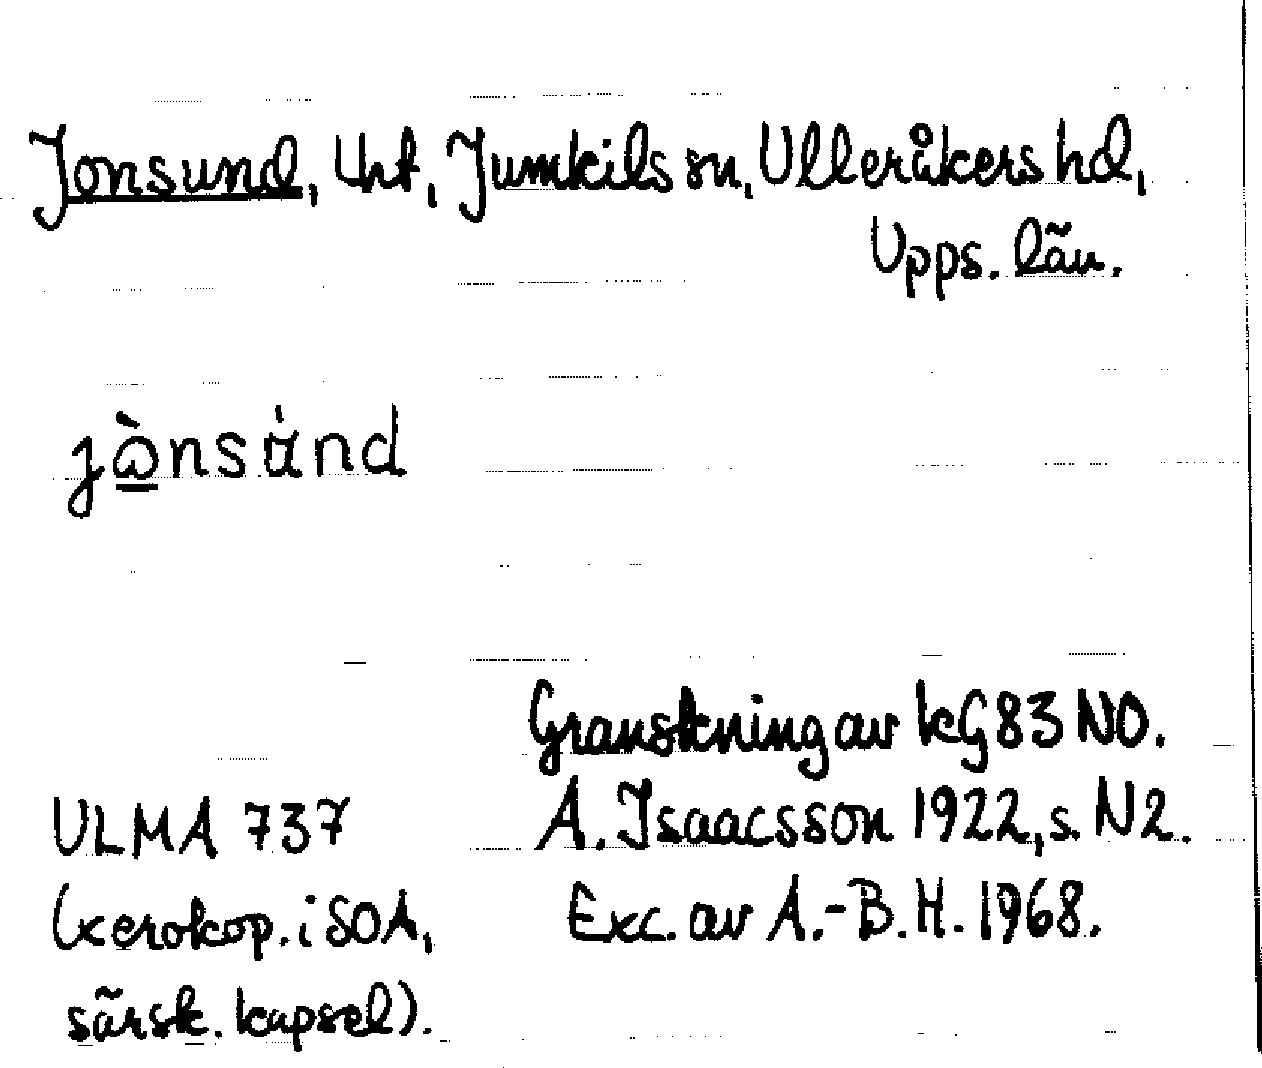 Jonsund, Uht, Jumkils sn, Ulleråkers hd,
Upps. län.
jὼnsα̇nd
Granskning av kG83 NO.
ULMA 737 A. Isaacsson 1922, s. N2.
(xerokop. i SOA, Exc. av A.-B. H. 1968.
särsk. kapsel).